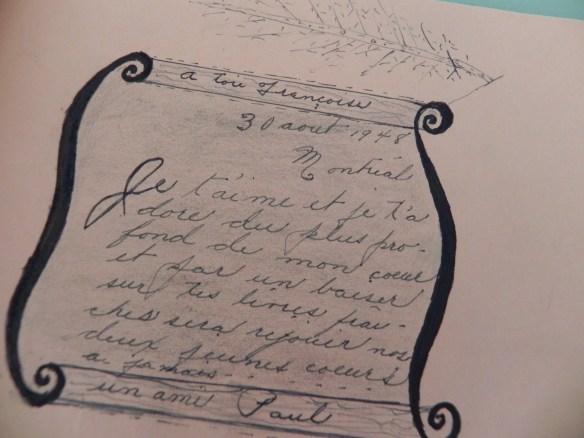 a toi Françoise
30 aout 1948
Montréal
Je t'aime et je t'a
dore du plus pro-
fond de mon coeur
et par un baiser
sur tes lèvres fraî-
ches sera réjouer nos
deux jeunes coeurs
a jamais
un ami Paul